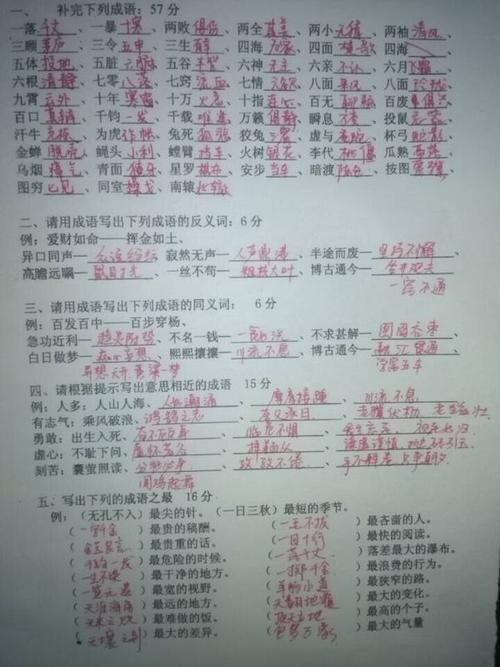 一、补充下列成语：57分
一落千丈、一暴十寒、两败俱伤、两全其美、两小无猜、两袖清风、
三顾茅庐、三令五申、三生有幸、四海为家、四面楚歌、四海
五体投地、五脏六腑、五谷不分、六神无主、六亲不认、六月飞霜、
六根清静、七零八落、七窍流血、七情六欲、八面威风、八面玲珑、
九霄云外、十年寒窗、十万火急、十指连心、百无聊赖、百废俱兴、
百口莫辩、千钧一发、千载难逢、万籁俱静、瞬息、投鼠忌器、
汗牛充栋、为虎作伥、兔死狐悲、狡兔三窟、虚与委蛇、杯弓蛇影、
金蝉脱壳、蝇头小利、螳臂挡车、火树银花、李代桃僵、瓜熟蒂落、
乌烟瘴气、青面獠牙、星罗棋布、安步当车、暗渡陈仓、按图索骥、
图穷匕见、同室操戈、南辕北辙、
二、请用成语写出下列成语的反义词：6分
例：爱财如命——挥金如土、
异口同声——众说纷纭、寂然无声——人声鼎沸、半途而废——坚持不懈、
高瞻远瞩——鼠目寸光、一丝不苟——粗枝大叶、博古通今——
一窍不通
三、请用成语写出下列成语的同义词：6分
例：百发百中——百步穿杨、
急功近利——、不名一钱——、不求甚解——囫囵吞枣、
白日做梦——痴心妄想、熙熙攘攘——川流不息、博古通今——融汇贯通、
异想天开 黄粱梦 学富五车
四、请根据提示写出意思相近的成语 15分
例：人多：人山人海、人潮涌、摩肩接踵、川流不息、
有志气：乘风破浪、鸿鹄之志、、老骥伏枥、
勇敢：出生入死、奋不顾身、临危不惧、舍生忘死、视死如归
虚心：不耻下问、虚怀若谷、、谦虚谨慎、
刻苦：囊萤照读、、孜孜不倦、手不释卷
闻鸡起舞
五、写出下列的成语之最 16分
例：（无孔不入）最尖的针。（一日三秋）最短的季节。
（一字千金）最贵的稿酬。（一毛不拔）最吝啬的人。
（金玉良言）最贵重的话。（一目十行）最快的阅读。
（千钧一发）最危险的时候。（一落千丈）落差最大的瀑布。
（一尘不染）最干净的地方。（一掷千金）最浪费的行为。
（一览无遗）最宽的视野。（羊肠小道）最狭窄的路。
（天涯海角）最远的地方。（天翻地覆）最大的变化。
（无米之炊）最难做的饭。（顶天立地）最高的个子。
（天壤之别）最大的差异。（包罗万象）最大的气量